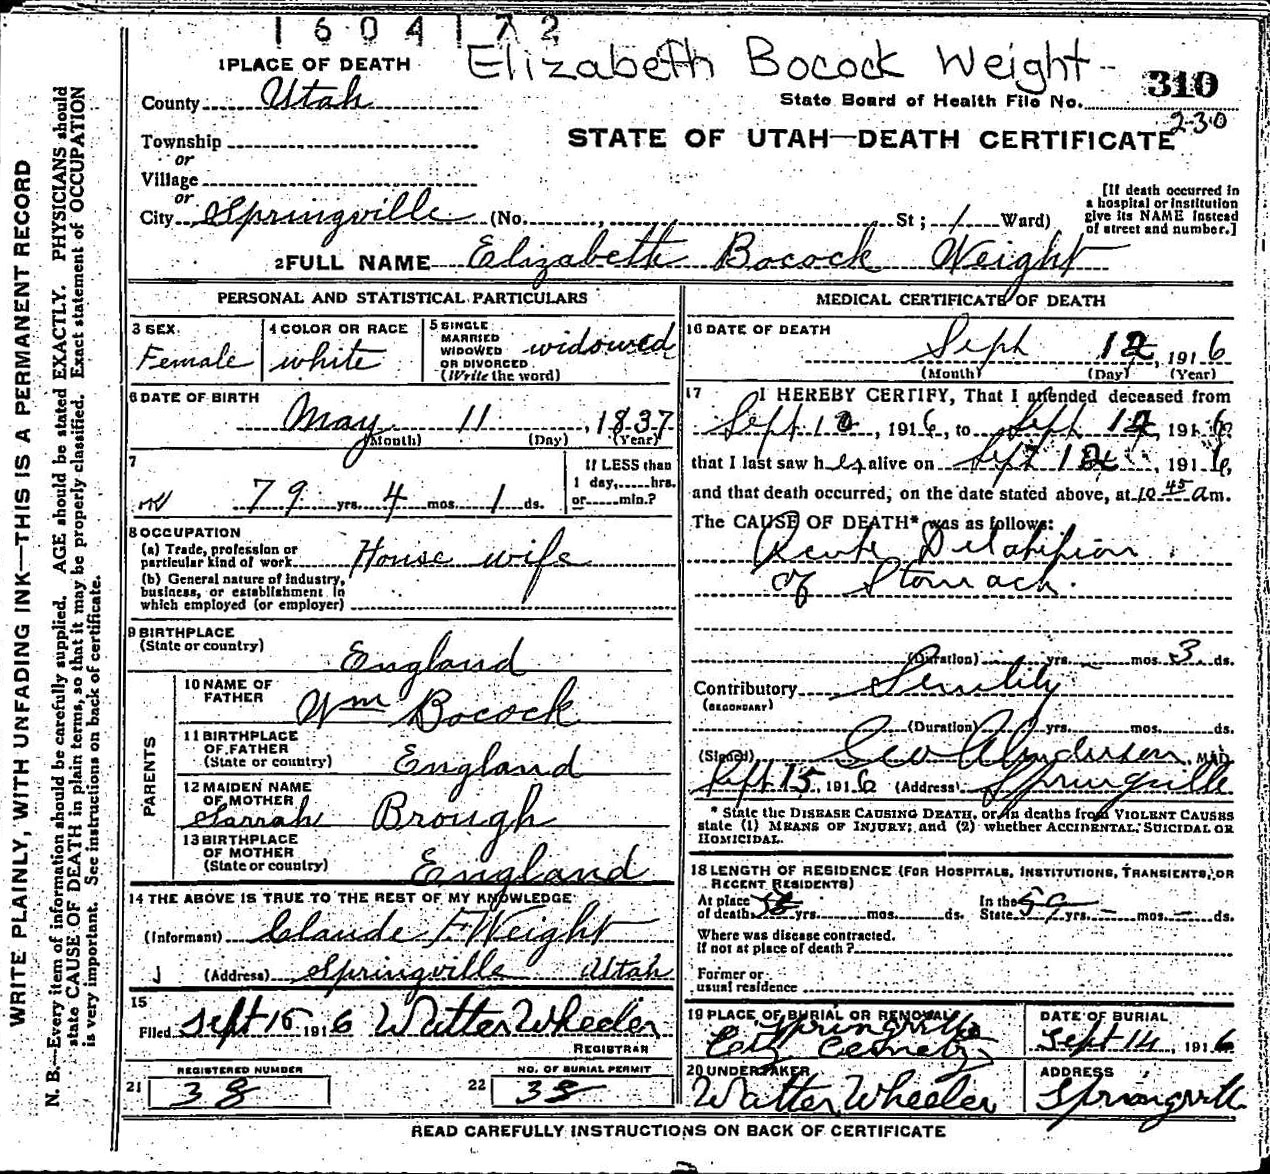 1604172
Elizabeth Bocock Weight
1 PLACE OF DEATH
310
County Utah
State Board of Health File No.
230
Township
STATE OF UTAH—DEATH CERTIFICATE
or
Village
or
City Springville (No. , St; 1 Ward)
[If death occurred in
a hospital or institution
give its NAME instead
of street and number.]
2 FULL NAME Elizabeth Bocock Weight
PERSONAL AND STATISTICAL PARTICULARS
3 SEX
Female
4 COLOR OR RACE
white
5 SINGLE
MARRIED
WIDOWED
OR DIVORCED
(Write the word)
widowed
6 DATE OF BIRTH
May 11, 1837
(Month) (Day) (Year)
7
79 yrs. 4 mos. 1 ds.
If LESS than
1 day, hrs.
or min.?
8 OCCUPATION
(a) Trade, profession or
particular kind of work House wife
(b) General nature of industry,
business, or establishment in
which employed (or employer)
9 BIRTHPLACE
(State or country)
England
PARENTS
10 NAME OF
FATHER
Wm Bocock
11 BIRTHPLACE
OF FATHER
(State or country)
England
12 MAIDEN NAME
OF MOTHER
Sarrah Brough
13 BIRTHPLACE
OF MOTHER
(State or country)
England
14 THE ABOVE IS TRUE TO THE BEST OF MY KNOWLEDGE
(Informant) Claude F Weight
(Address) Springville Utah
15
Filed Sept 15 1916 Walter Wheeler
REGISTRAR
REGISTERED NUMBER
21 38
NO. OF BURIAL PERMIT
22 38
MEDICAL CERTIFICATE OF DEATH
16 DATE OF DEATH
Sept 12, 1916
(Month) (Day) (Year)
17 I HEREBY CERTIFY, That I attended deceased from
Sept 10, 1916, to Sept 12, 1916,
that I last saw her alive on Sept 12, 1916,
and that death occurred, on the date stated above, at 10 45 am.
The CAUSE OF DEATH* was as follows:
Acute Dilatation
of Stomach.
(Duration) yrs. mos. 3 ds.
Contributory Senility
(SECONDARY)
(Duration) yrs. mos. ds.
(Signed) Geo Anderson, M.D.
Sept 15, 1916 (Address) Springville
* State the DISEASE CAUSING DEATH, or in deaths from VIOLENT CAUSES
state (1) MEANS OF INJURY; and (2) whether ACCIDENTAL, SUICIDAL OR
HOMICIDAL.
18 LENGTH OF RESIDENCE (FOR HOSPITALS, INSTITUTIONS, TRANSIENTS, OR
RECENT RESIDENTS)
At place
of death yrs. mos. ds.
In the
State yrs. mos. ds.
Where was disease contracted.
if not at place of death?
Former or
usual residence
19 PLACE OF BURIAL OR REMOVAL
Springville
City Cemetery
DATE OF BURIAL
Sept 14, 1916
20 UNDERTAKER
Walter Wheeler
ADDRESS
Springville
READ CAREFULLY INSTRUCTIONS ON BACK OF CERTIFICATE
WRITE PLAINLY, WITH UNFADING INK—THIS IS A PERMANENT RECORD
N. B.—Every item of information should be carefully supplied. AGE should be stated EXACTLY. PHYSICIANS should
state CAUSE OF DEATH in plain terms, so that it may be properly classified. Exact statement of OCCUPATION
is very important. See instructions on back of certificate.